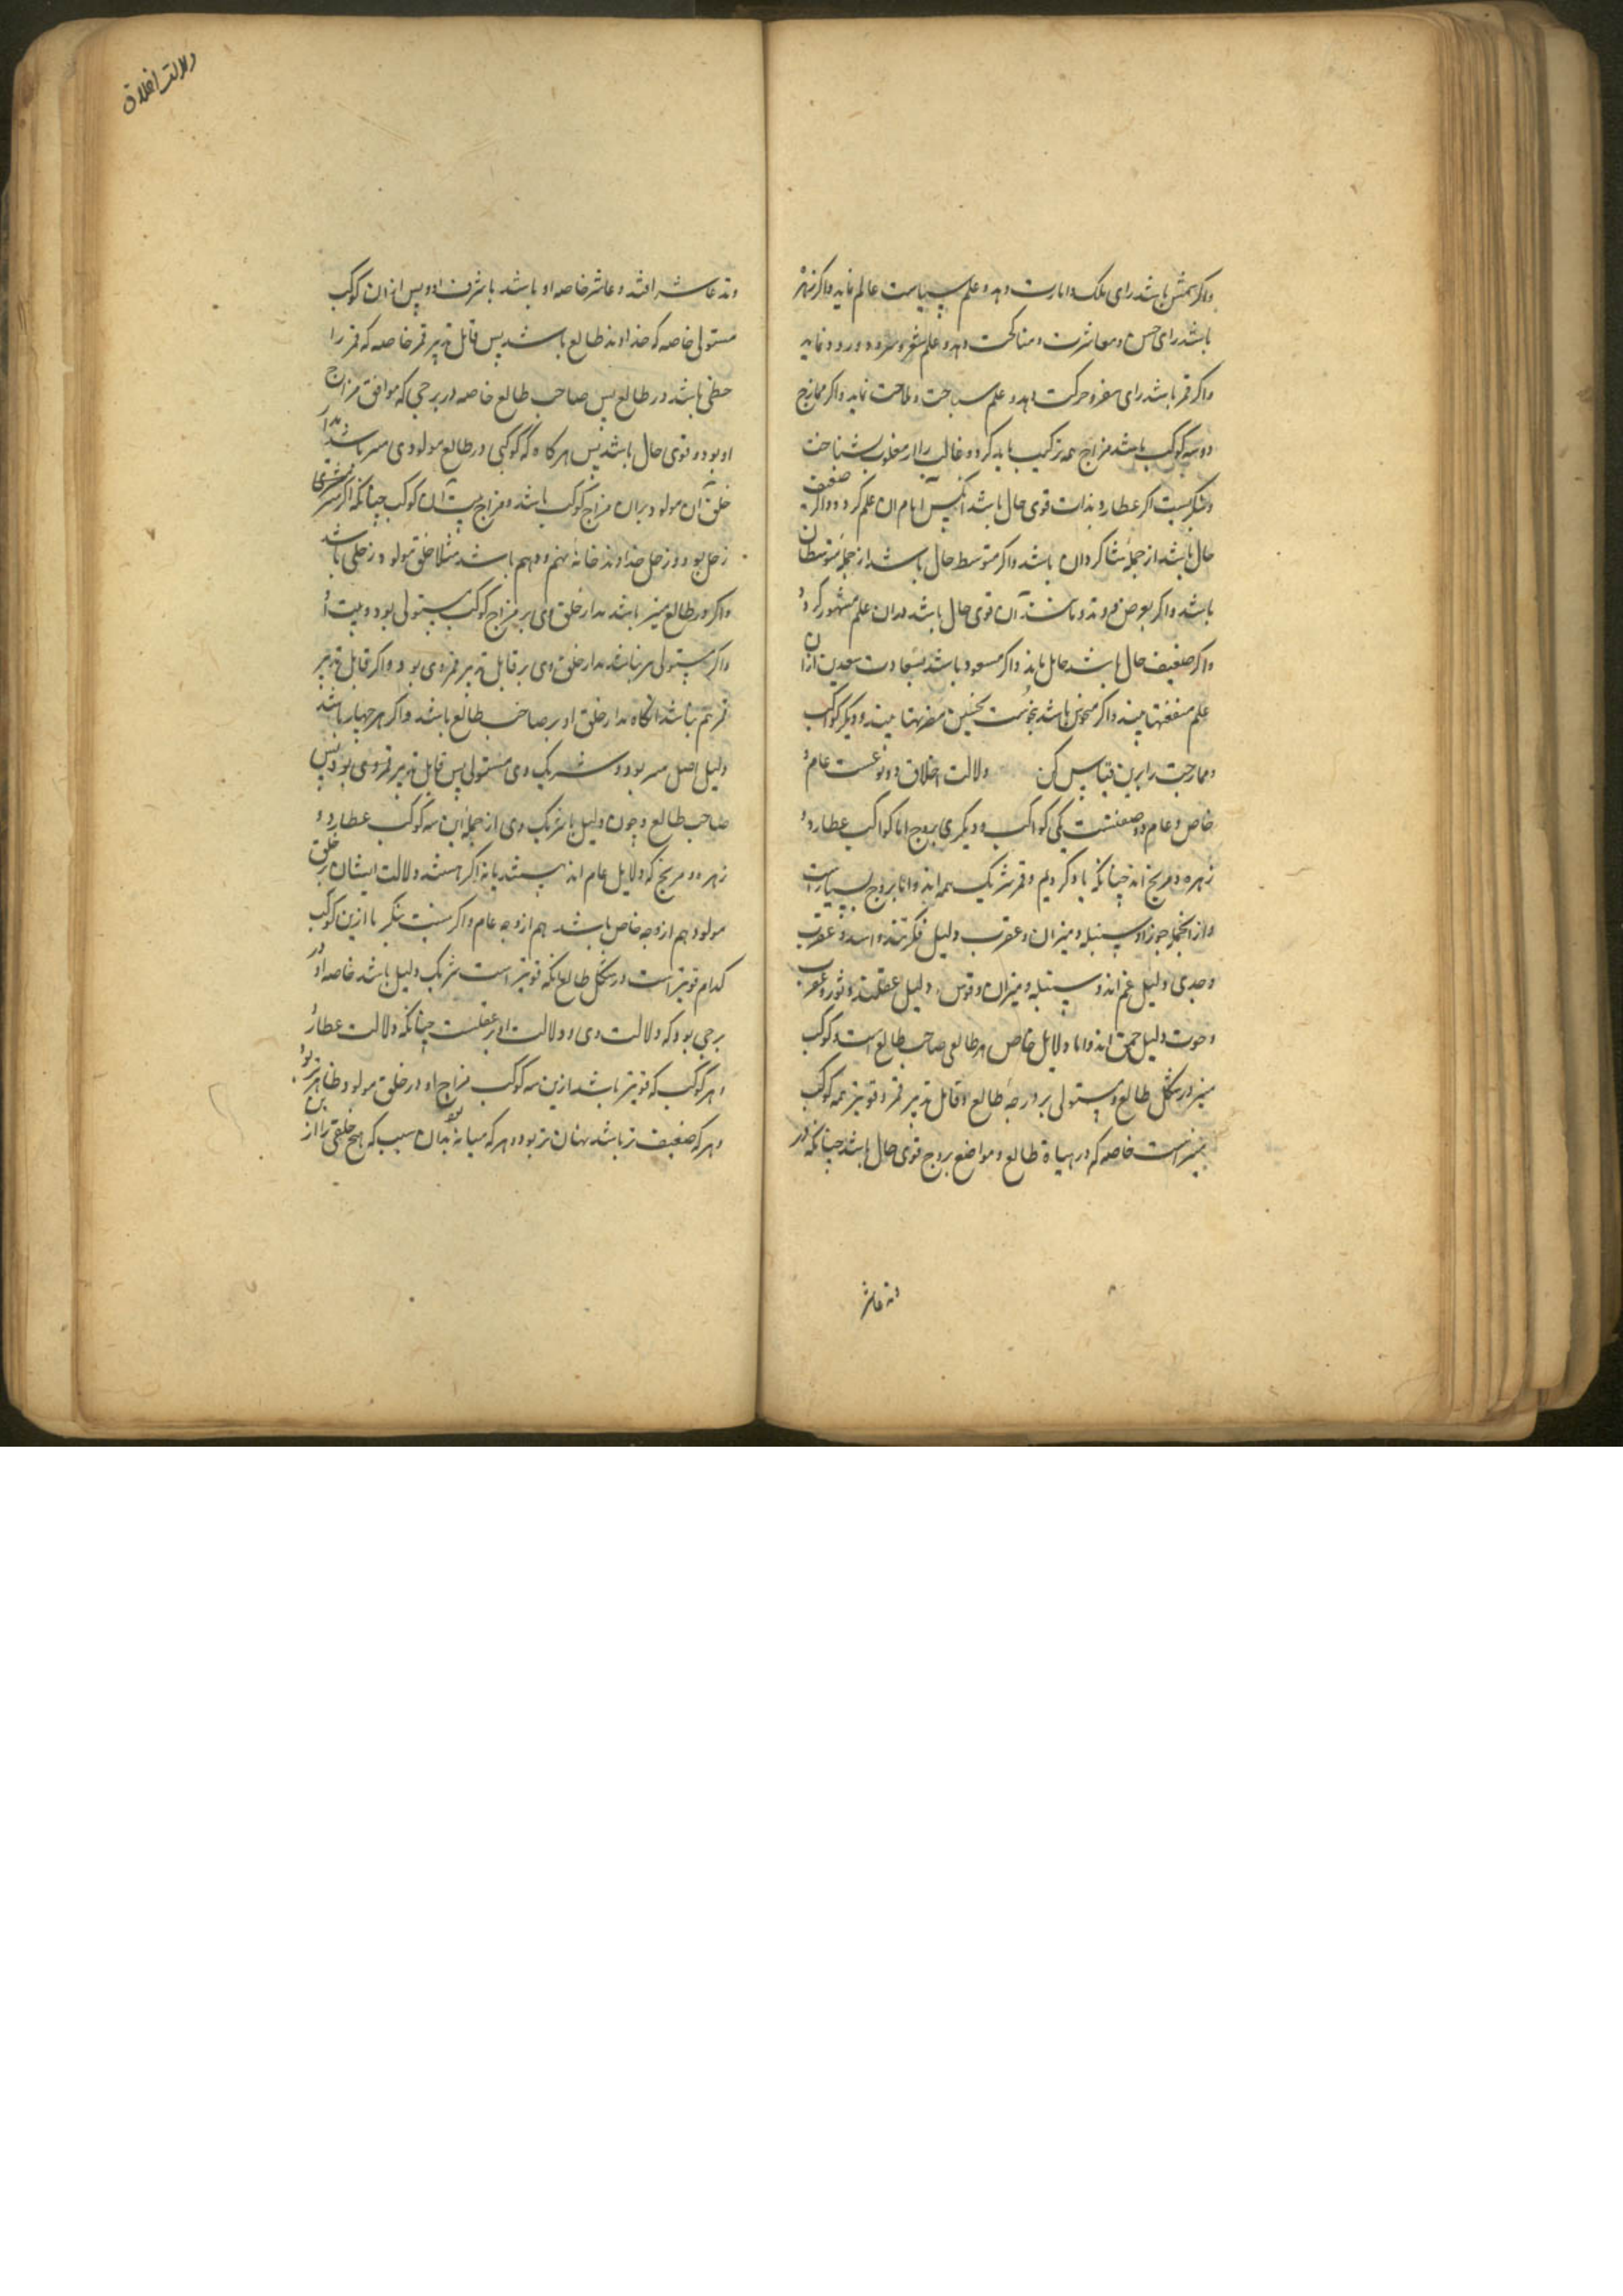 واکر شمس باشد رای ملک و امارت دهد و علم سیاست عالم نماید واکر زهره
باشد رای حسن و معاشرت و مناکحت دهد و علم شعر و سرود و رود نماید
واکر قمر باشد رای سفر و حرکت دهد و علم سیاحت و ملاحت نماید واکر ممازج
دو سه کوکب باشد مزاج همه ترکیب باید کرد و غالب را از مغلوب شناخت
و بنکریست اکر عطارد بذات قوی حال باشد آنکس امام ان علم کردد واکر ضعیف
حال باشد از جمله شاکردان باشد واکر متوسط حال باشد از جمله متوسطان
باشد واکر بعرض و تد و مانند آن قوی حال باشد بدان علم مشهور کردد
واکر ضعیف حال باشد خامل ماند واکر مسعود باشد بسعادت سعدین ازان
علم منفعتها بیند واکر منحوس باشد بنحوست نحسین مضرتها بیند و دیکر کواکب
و ممازجت را برین قیاس کن دلالت اخلاق دو نوعست عام و
خاص و عام دو صنفست یکی کواکب و دیکری بروج اما کواکب عطارد و
زهره و مریخ اند چنانکه یاد کردیم و قمر شریک همه اند واما بروج بسیارست
و از انجمله جوزا و سنبله و میزان و عقرب دلیل فکرتند و اسد و عقرب
و جدی دلیل غم اند و سنبله و میزان و قوس دلیل عقلند و ثور و عقرب
و حوت دلیل حمق اند واما دلایل خاص هر طالعی صاحب طالع است و کوکب
مبتز در شکل طالع و مستولی بر درجه طالع و قابل تدبیر قمر و قویتر همه کوکب
مبتز است خاصه که در هیاة طالع و مواضع بروج قوی حال باشد چنانکه در
وتد عاشر
دلالت اخلاق
وتد عاشر افتد و عاشر خاصه او باشد با شرف او و پس ازان کوکب
مستولی خاصه که خداوند طالع باشد پس قابل تدبیر قمر خاصه که قمر را
حظی باشد در طالع پس صاحب طالع خاصه در برجی که موافق مزاج
او بود و قوی حال باشد پس هر کاه که کوکبی در طالع مولودی مبتز باشد مدار
خلق آن مولود بران مزاج کوکب باشد و مزاج بیت آن کوکب چنانکه اکر مبتز مشتری
زحل بود و زحل خداوند خانه نهم و دهم باشد مثلا خلق مولود زحلی باشد
واکر در طالع مبتز نباشد مدار خلق وی بر مزاج کوکب مستولی بود و بیت او
واکر مستولی هم نباشد مدار خلق وی بر قابل تدبیر قمر وی بود واکر قابل تدبیر
قمر هم نباشد انکاه مدار خلق او بر صاحب طالع باشد واکر هر چهار باشد
دلیل اصل مبتز بود و شریک وی مستولی پس قابل تدبیر قمر وی بود پس
صاحب طالع و چون دلیل با شریک وی از جمله این سه کوکب عطارد و
زهره و مریخ که دلایل عام اند هستند یا نه اکر هستند دلالت ایشان بر خلق
مولود هم از وجه خاص باشد هم از وجه عام واکر نیستند بنکر تا ازین کوکب
کدام قویتر است در شکل طالع انکه قویتر است شریک دلیل باشد خاصه او در
برجی بود که دلالت وی و دلالت او بر عقلست چنانکه دلالت عطارد
هر کوکب که قویتر باشد ازین سه کوکب مزاج او در خلق مولود ظاهرتر بود
و هر که ضعیف تر باشد پنهان تر بود و هر که میانه بود بدان سبب که هیچ خلقی را از